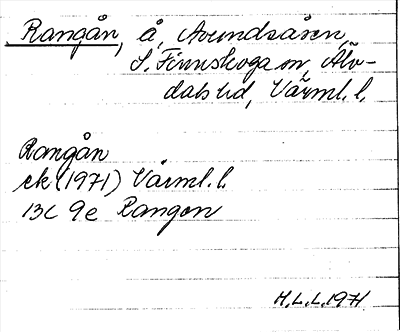 Rangån, å, Avundsåsen,
S. Finnskoga sn, Älv-
dals hd, Värml. l.
Rangån
ek (1971) Värml. l.
13C 9e Rangen
H.L.L. 1971